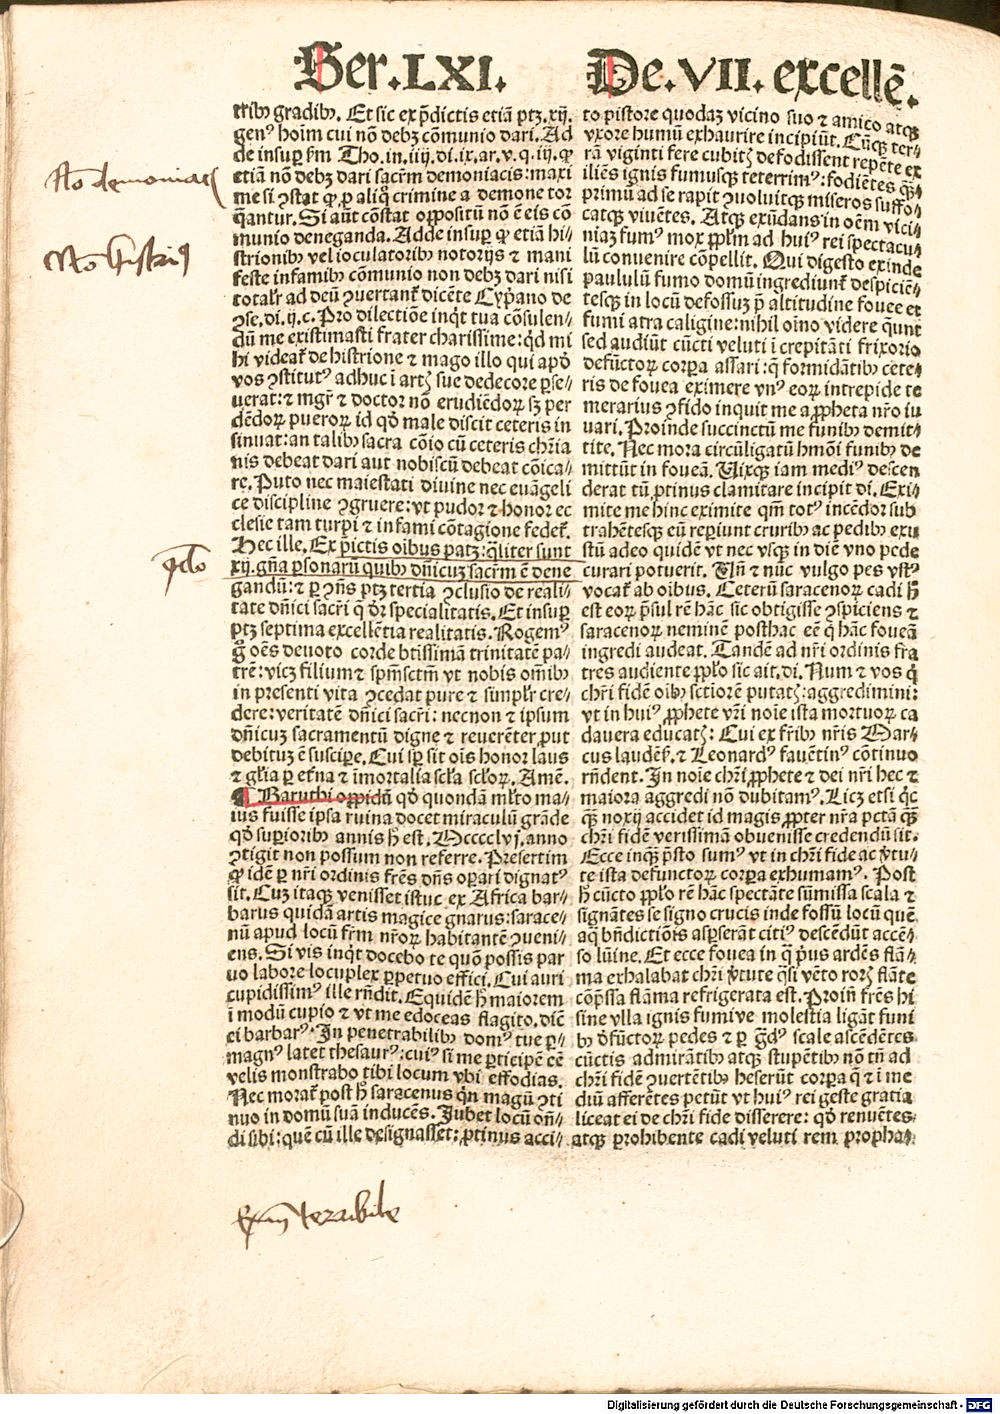 Ser.LXI.
De.VII.excellē.
tribꝰ gradibꝰ. Et sic ex p̄dictis etiā ptꝫ.xij.
genꝰ hoīm cui nō debꝫ cōmunio dari. Ad
de insuꝑ ẜm Tho.in.iiij.di.ix.ar.v.q.iij.ꝙ
etiā nō debꝫ dari sacrm̄ demoniacis: maxi
me si ꝯstat ꝙ ꝓ aliq̄ crimine a demone tor
q̄antur. Si aūt cōstat oppositū nō ē eis cō
munio deneganda. Adde insuꝑ ꝙ etiā hi⸗
strionibꝰ vel ioculatoribꝰ notorijs ⁊ mani
feste infamibꝰ cōmunio non debꝫ dari nisi
totalr̄ ad deū ꝯuertant̄ dicēte Cyp̄ano de
ꝯse.di.ij.c. Pro dilectiōe inqt̄ tua cōsulen⸗
dū me existimasti frater charissime: qd̄ mi
hi videat̄ de histrione ⁊ mago illo qui apd̄
vos ꝯstitutꝰ adhuc ī artꝭ sue dedecore ꝑse⸗
uerat: ⁊ mgr̄ ⁊ doctor nō erudiēdoꝝ sꝫ per
dēdoꝝ pueroꝝ id qd̄ male discit ceteris in
sinuat: an talibꝰ sacra cōio cū ceteris chr̄ia
nis debeat dari aut nobiscū debeat cōica⸗
re. Puto nec maiestati diuine nec euāgeli
ce discipline ꝯgruere: vt pudor ⁊ honor ec
clesie tam turpi ⁊ infami cōtagione fedet̄.
Hec ille. Ex p̄ictis oībus patꝫ: q̄liter sunt
xij. gn̄a ꝑsonarū quibꝰ dn̄icuꝫ sacrm̄ ē dene
gandū: ⁊ ꝑ ꝯn̄s ptꝫ tertia ꝯclusio de reali⸗
tate dn̄ici sacr̄i q̄ d̄r specialitatis. Et insuꝑ
ptꝫ septima excellētia realitatis. Rogemꝰ
g̊ oēs deuoto corde btīssimā trinitatē pa⸗
trē: vicꝫ filium ⁊ spm̄sctm̄ vt nobis om̄ibꝰ
in presenti vita ꝯcedat pure ⁊ simplr̄ cre⸗
dere: veritatē dn̄ici sacr̄i: necnon ⁊ ipsum
dn̄icuꝫ sacramentū digne ⁊ reuerēter ꝓut
debituꝫ ē suscipe. Cui sp̄ sit oīs honor laus
⁊ gl̄ia ꝑ et̄na ⁊ īmortalia scl̄a scl̄oꝝ. Amē.
¶ Baruthi oppidū qd̄ quondā ml̄to ma⸗
ius fuisse ipsa ruina docet miraculū grāde
qd̄ suꝑioribꝰ annis h̄ est. Mcccclvj. anno
ꝯtigit non possum non referre. Presertim
ꝙ idē ꝑ nr̄i ordinis fr̄es dn̄s oꝑari dignatꝰ
sit. Cuꝫ itaqꝫ venisset istuc ex Africa bar⸗
barus quidā artis magice gnarus: sarace⸗
nū apud locū fr̄m nr̄oꝝ habitantē ꝯueni⸗
ens. Si vis inqt̄ docebo te quō possis par
uo labore locuplex ꝑpetuo effici. Cui auri
cupidissimꝰ ille rn̄dit. Equidē h̄ maiorem
ī modū cupio ⁊ vt me edoceas flagito. dic̄
ei barbarꝰ. In penetrabilibꝰ domꝰ tue ꝑ⸗
magnꝰ latet thesaurꝰ: cuiꝰ si me ꝑticipē cē
velis monstrabo tibi locum vbi effodias.
Nec morat̄ post h̄ saracenus qn̄ magū ꝯti
nuo in domū suā inducēs. Jubet locū on̄⸗
di sibi: quē cū ille designasset: ꝓtinus acci⸗
to pistore quodaꝫ vicino suo ⁊ amico atqꝫ
vxore humū exhaurire incipiūt. Cūqꝫ ter⸗
rā viginti fere cubitꝭ defodissent repēte ex
iliēs ignis fumusqꝫ teterrimꝰ: fodiētes q̄ꝫ
primū ad se rapit ꝯuoluitqꝫ miseros suffo⸗
catqꝫ viuētes. Atqꝫ exūdans in oēm vici⸗
niaꝫ fumꝰ mox pplm̄ ad huiꝰ rei spectacu⸗
lū conuenire cōpellit. Qui digesto exinde
paululū fumo domū ingrediunt̄ despiciē⸗
tesqꝫ in locū defossuꝫ p̄ altitudine fouee et
fumi atra caligine: nihil oīno videre q̄unt
sed audiūt cūcti veluti ī crepitāti frixorio
defūctoꝝ corpa assari: q̄ formidātibꝰ cete⸗
ris de fouea eximere vnꝰ eoꝝ intrepide te
merarius ꝯfido inquit me a ꝓpheta nr̄o iu
uari. Proinde succinctū me funibꝰ demit⸗
tite. Nec mora circūligatū hmōi funibꝰ de
mittūt in foueā. Uixqꝫ iam mediꝰ descen
derat tū ꝓtinus clamitare incipit di. Exi⸗
mite me hinc eximite qm̄ totꝰ incēdor sub
trahētesqꝫ eū reꝑiunt cruribꝰ ac pedibꝰ exu
stū adeo quidē vt nec vsqꝫ in diē vno pede
curari potuerit. Vn̄ ⁊ nūc vulgo pes vstꝰ
vocat̄ ab oībus. Ceterū saracenoꝝ cadi h̄
est eoꝝ p̄sul rē hāc sic obtigisse ꝯspiciens ⁊
saracenoꝝ neminē posthac eē q̄ hāc foueā
ingredi audeat. Tandē ad nr̄i ordinis fra
tres audiente pplo sic ait. di. Num ⁊ vos q̄
chr̄i fidē oībꝰ sctiorē putatꝭ: aggredimini:
vt in huiꝰ ꝓphete vr̄i noīe ista mortuoꝝ ca
dauera educatꝭ: Cui ex fr̄ibꝰ nr̄is Mar⸗
cus laudēs̄. ⁊ Leonardꝰ fauētinꝰ cōtinuo
rn̄dent. In noīe chr̄i ꝓphete ⁊ dei nr̄i hec ⁊
maiora aggredi nō dubitamꝰ. Licꝫ etsi q̄c
q̄ꝫ noxij accidet id magis ꝓpter nr̄a pctā q̄ꝫ
chr̄i fidē verissimā obuenisse credendū sit.
Ecce inqꝫ p̄sto sumꝰ vt in chr̄i fide ac v̄tu⸗
te ista defunctoꝝ corpa exhumamꝰ. Post
h̄ cūcto pplo rē hāc spectāte sūmissa scala ⁊
signātes se signo crucis inde fossū locū quē
aq̄ bn̄dictiōis asꝑserāt citiꝰ descēdūt accē⸗
so lūine. Et ecce fouea in q̄ p̄us ardēs flā⸗
ma exhalabat chr̄i v̄tute q̄si vēto rorꝭ flāte
cōp̄ssa flāma refrigerata est. Proin̄ fr̄es hi
sine vlla ignis fumive molestia ligāt funi
bꝰ dd̄fūctoꝝ pedes ⁊ ꝑ g̊dꝰ scale ascēdētes
cūctis admirātibꝰ atqꝫ stupētibꝰ nō tn̄ ad
chr̄i fidē ꝯuertētibꝰ heserūt corpa q̄ ⁊ ī me
diū afferētes petūt vt huiꝰ rei geste gratia
liceat ei de chr̄i fide disserere: qd̄ renuētes
atqꝫ prohibente cadi veluti rem propha⸗
No demoniaci
No histrio
exm̄ terribile
Digitalisierung gefördert durch die Deutsche Forschungsgemeinschaft - DFG